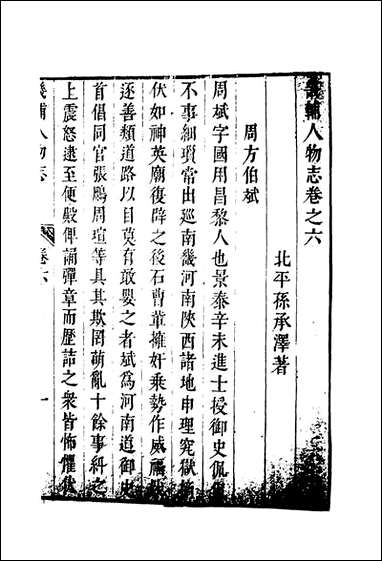 畿輔人物志卷之六
北平孫承澤著
周方伯斌
周斌字國用昌黎人也景泰辛未進士授御史侃
不事細瑣常出巡南畿河南陜西諸地申理冤獄
伏如神英廟復辟之後石曹輩擁奸乘勢作威福
逐善類道路以目莫有敢嬰之者斌為河南道御史
首倡同官張鵬周瑄等具其欺罔萌亂十餘事糾之
上震怒逮至便殿俾誦彈章而歷詰之衆皆怖懼伏
畿輔人物志 卷六 一